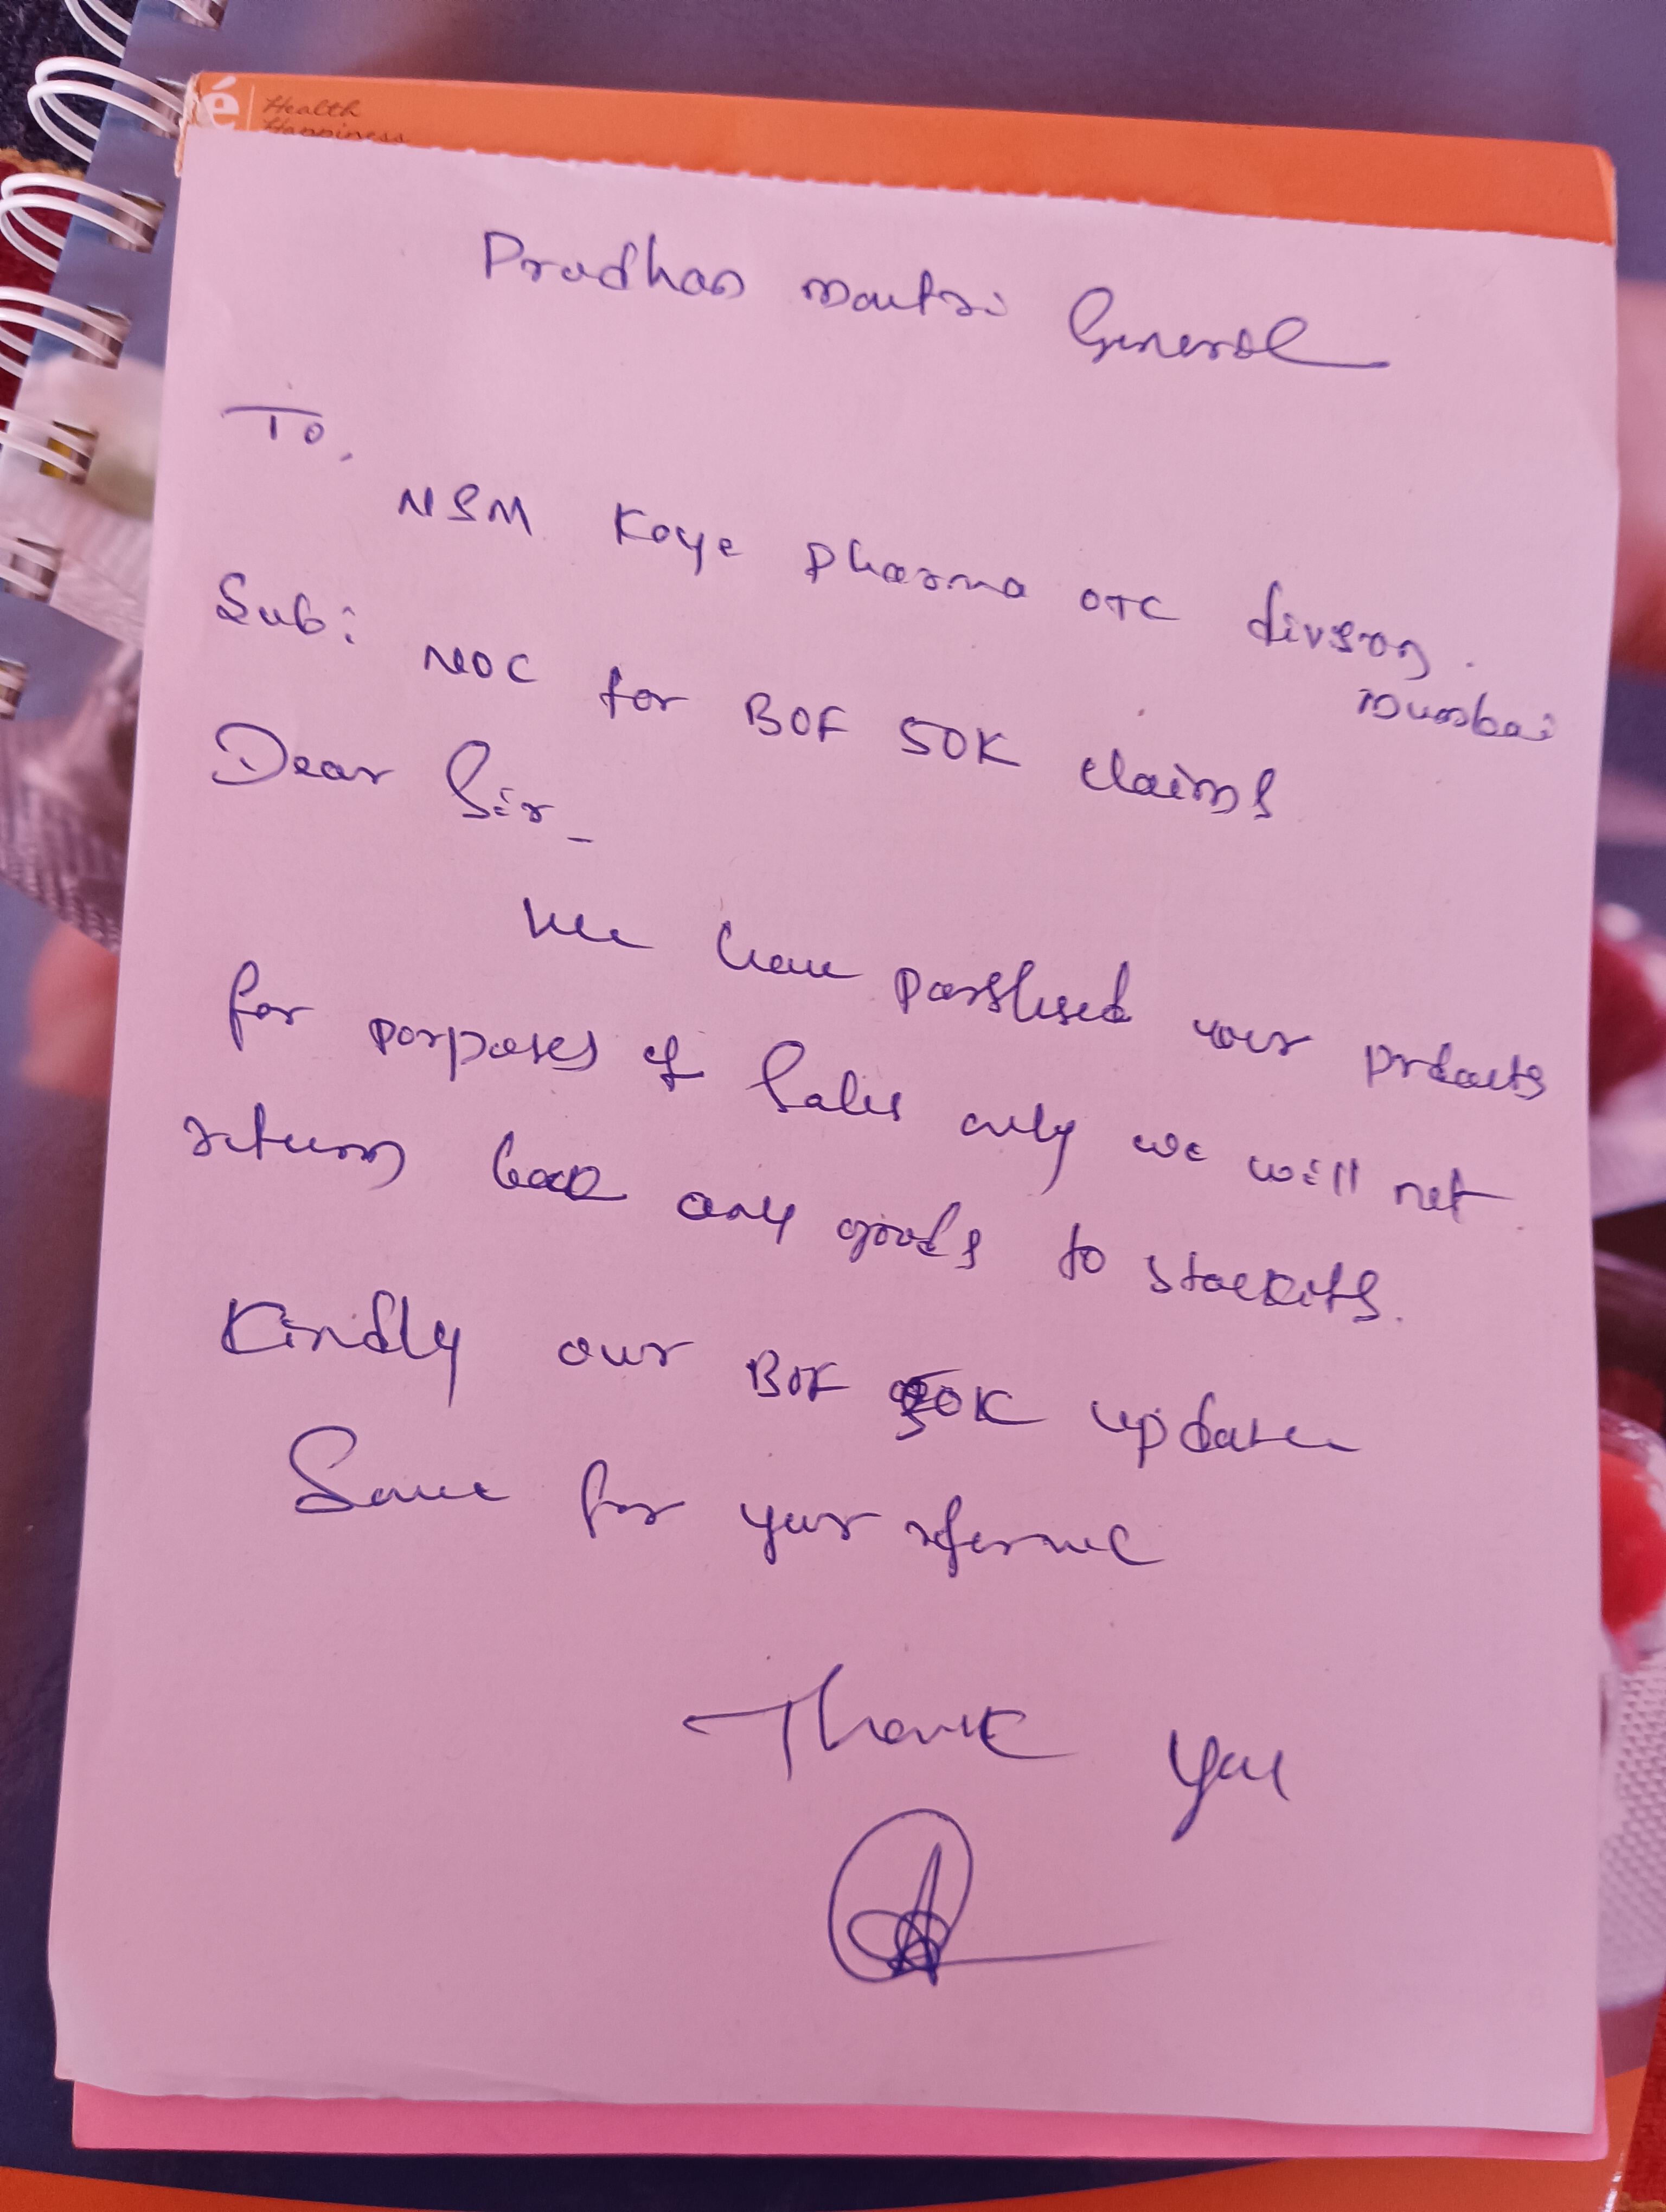 é Health
Happiness
Pradhan mantri General
To,
NSM Koye Pharma OTC divson.
Mumbai
Sub: NOC for BOF 50K claims
Dear Sir_
We have parshsed your prdoucts
for porposes of Sales only we will not
return back any goods to stockits.
Kindly our BOF 50K update
Same for your refernce
Thank you